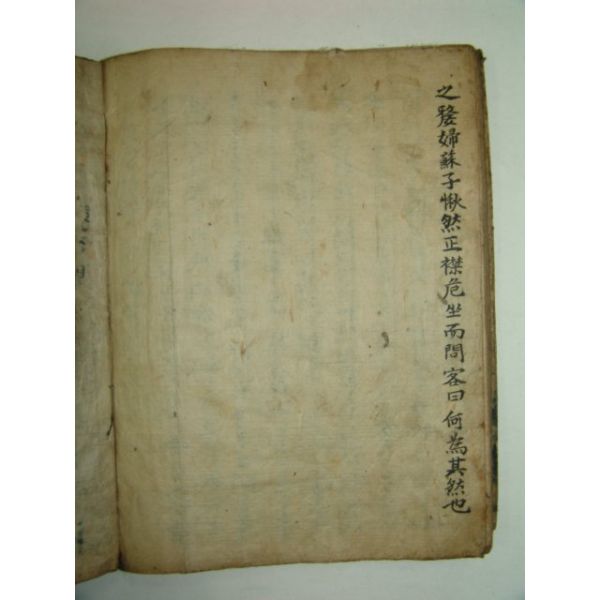 之嫠婦蘇子愀然正襟危坐而問客曰何為其然也